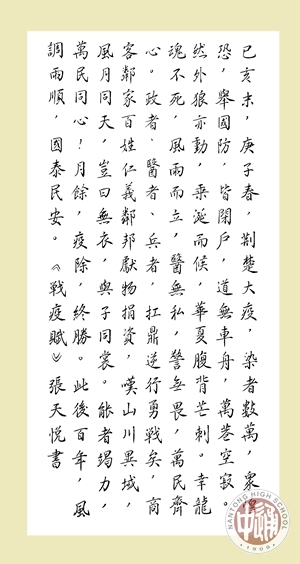 己亥末，庚子春，荆楚大疫，染者數萬，衆惶
恐，舉國防，皆閉戶，道無車舟，萬巷空寂。
然外狼亦動，垂涎而候，華夏腹背芒刺。幸龍
魂不死，風雨而立，醫無私，警無畏，萬民齊
心。政者、醫者、兵者，扛鼎逆行勇戰矣，商
客鄰家百姓仁義鄰邦獻物捐資，嘆山川異域，
風月同天，豈曰無衣，與子同裳。能者竭力，
萬民同心！月餘，疫除，終勝。此後百年，風
調雨順，國泰民安。《戰疫賦》張天悅書
NANTONG HIGH SCHOOL
1909